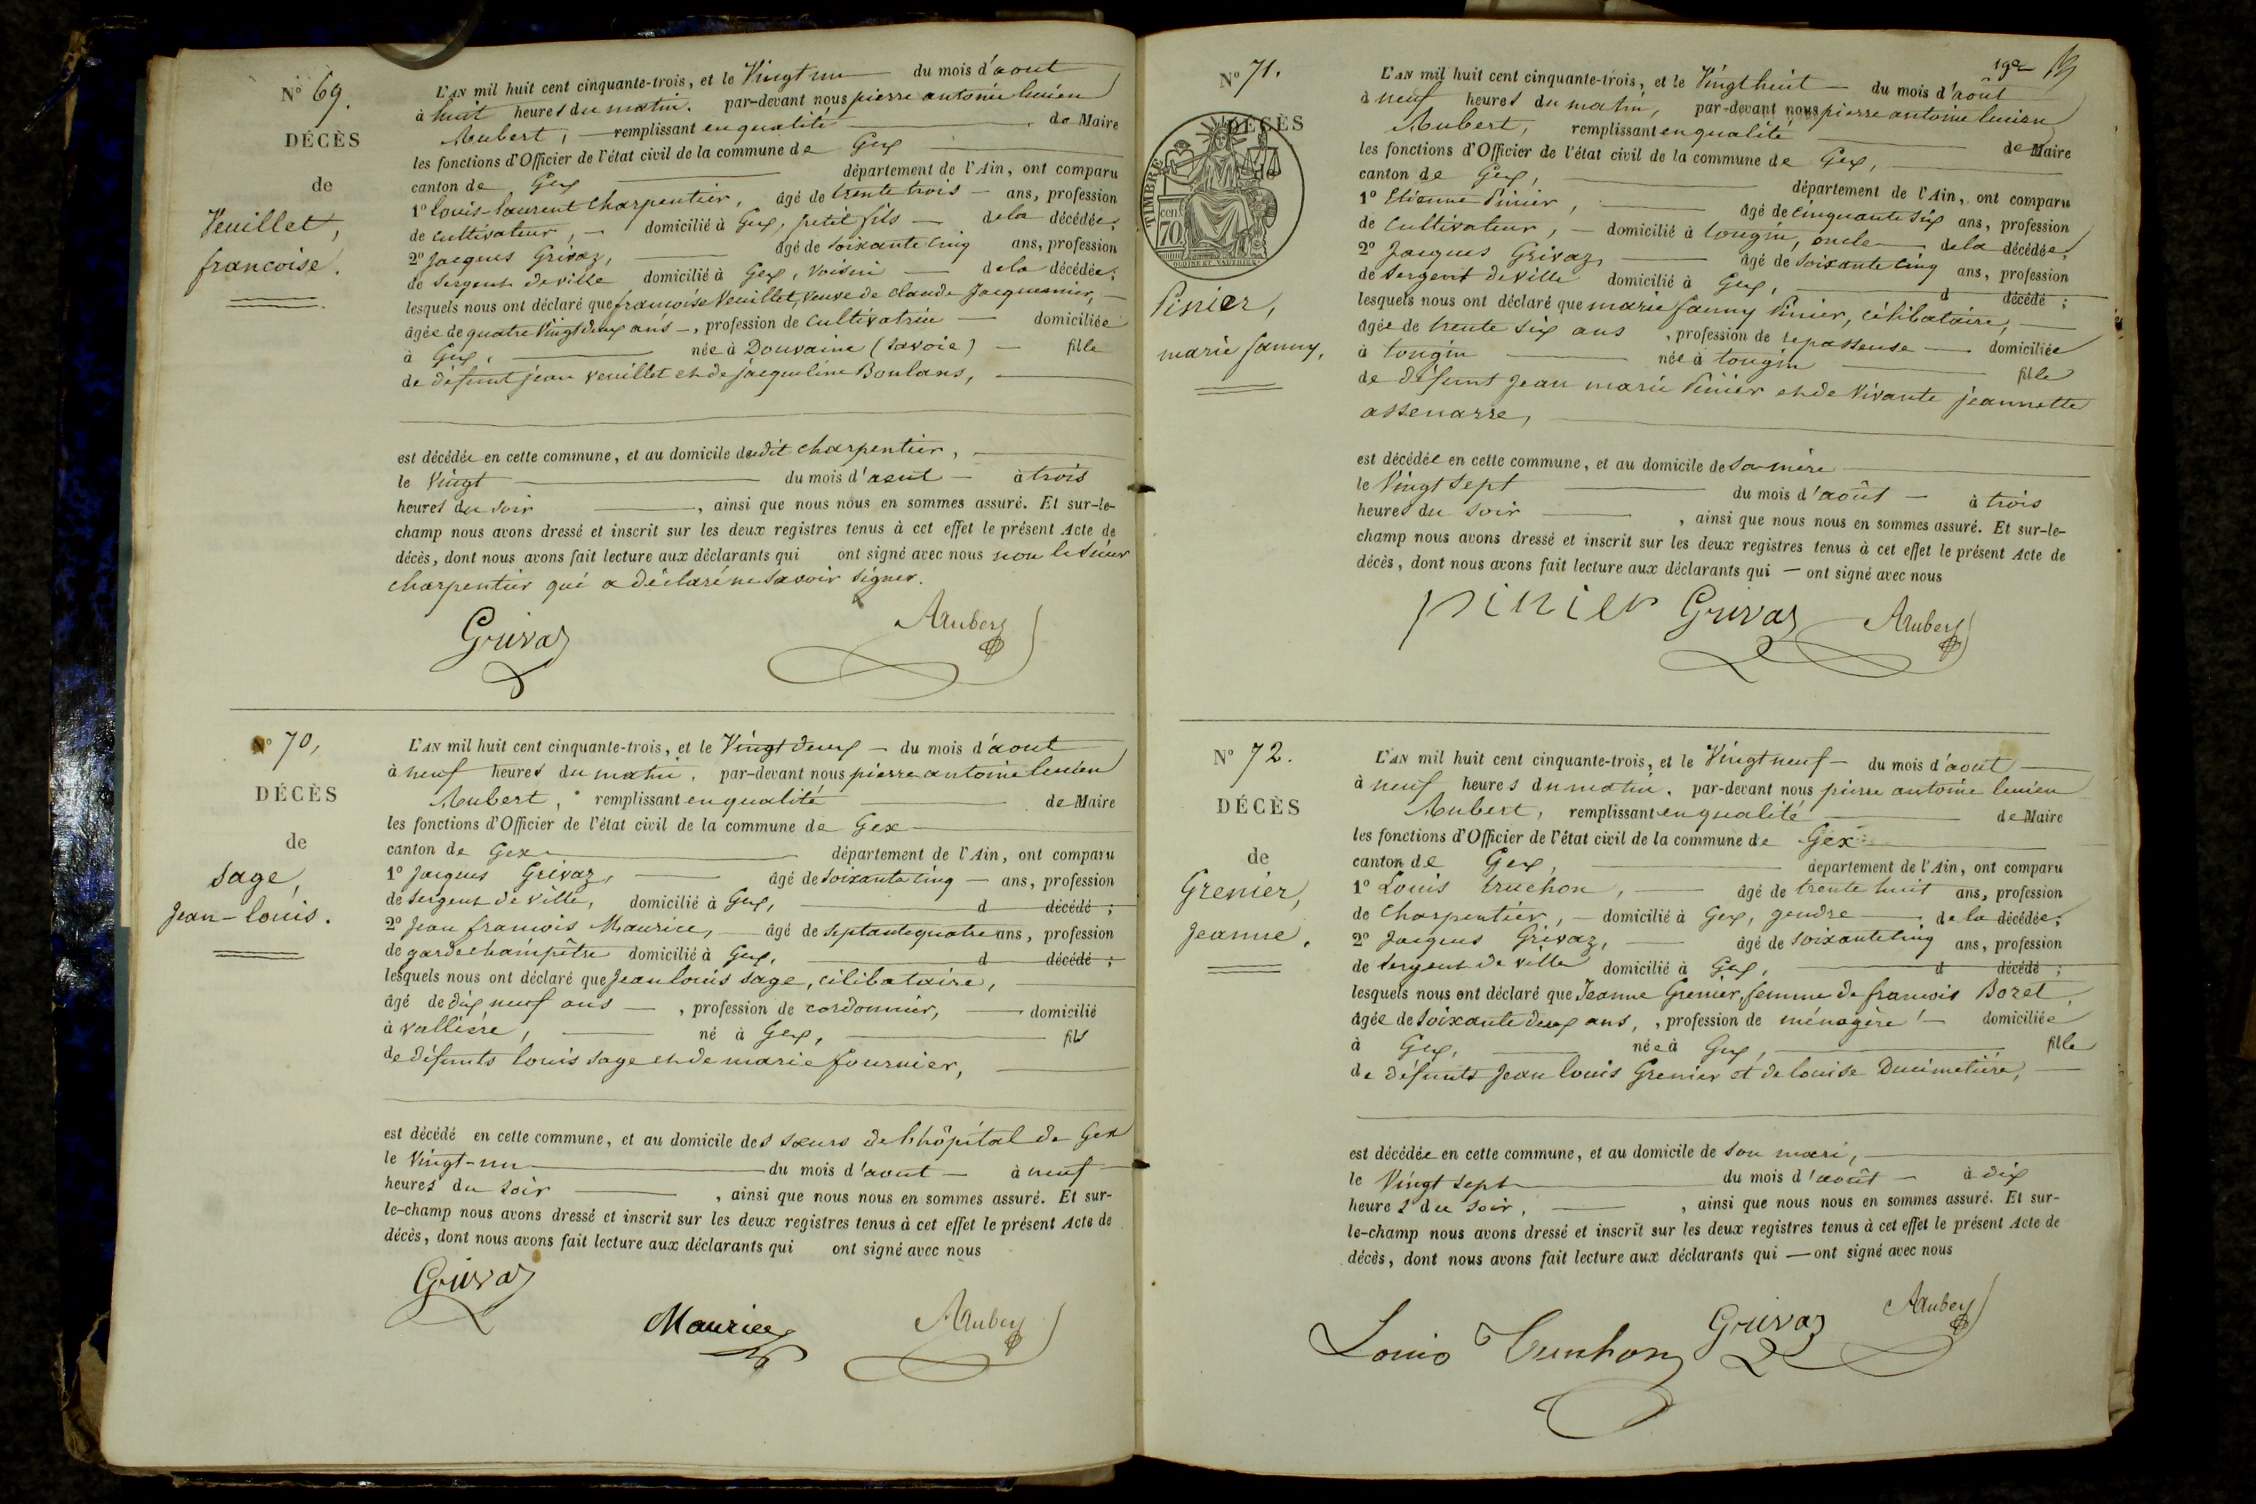 N° 69.
DÉCÈS
de
Veuillet,
francoise.
L'AN mil huit cent cinquante-trois, et le Vingt un du mois d'aout
à huit heures du matin. par-devant nous pierre antoine lucien
Aubert, remplissant en qualité de Maire
les fonctions d'Officier de l'état civil de la commune de Gex
canton de Gex département de l'Ain, ont comparu
1° louis-laurent charpentier, âgé de trente trois ans, profession
de cultivateur, domicilié à Gex, petit fils de la décédée;
2° Jacques Grivaz, âgé de soixante cinq ans, profession
de sergent de ville domicilié à Gex, voisin de la décédée;
lesquels nous ont déclaré que francoise Veuillet, veuve de claude Jacquemier,
âgée de quatre vingt deux ans, profession de cultivatrice domiciliée
à Gex, née à Douvaine (savoie) fille
de défunt jean veuillet et de jacqueline Boulans,
est décédée en cette commune, et au domicile dudit charpentier,
le Vingt du mois d'aout à trois
heures du soir, ainsi que nous nous en sommes assuré. Et sur-le-
champ nous avons dressé et inscrit sur les deux registres tenus à cet effet le présent Acte de
décès, dont nous avons fait lecture aux déclarants qui ont signé avec nous non le sieur
charpentier qui a déclaré ne savoir signer.
Grivaz Aubert
N° 70,
DÉCÈS
de
Sage,
Jean-louis.
L'AN mil huit cent cinquante-trois, et le Vingt deux du mois d'aout
à neuf heures du matin. par-devant nous pierre antoine lucien
Aubert, remplissant en qualité de Maire
les fonctions d'Officier de l'état civil de la commune de Gex
canton de Gex département de l'Ain, ont comparu
1° Jacques Grivaz, âgé de soixante cinq ans, profession
de sergent de ville, domicilié à Gex, d décédé;
2° Jean francois Maurice, âgé de septante quatre ans, profession
de garde champêtre domicilié à Gex, d décédé;
lesquels nous ont déclaré que Jean louis sage, célibataire,
âgé de dix neuf ans, profession de cordonnier, domicilié
à vallière, né à Gex, fils
de défunts louis sage et de marie fournier,
est décédé en cette commune, et au domicile des sœurs de l'hôpital de Gex
le Vingt-un du mois d'aout à neuf
heures du soir, ainsi que nous nous en sommes assuré. Et sur-
le-champ nous avons dressé et inscrit sur les deux registres tenus à cet effet le présent Acte de
décès, dont nous avons fait lecture aux déclarants qui ont signé avec nous
Grivaz
Maurice Aubert
19e 19
N° 71.
DÉCÈS
TIMBRE
70 cen
Pinier,
marie fanny,
L'AN mil huit cent cinquante-trois, et le Vingt huit du mois d'août
à neuf heures du matin, par-devant nous pierre antoine lucien
Aubert, remplissant en qualité de Maire
les fonctions d'Officier de l'état civil de la commune de Gex,
canton de Gex, département de l'Ain, ont comparu
1° Etienne Pinier, âgé de cinquante six ans, profession
de cultivateur, domicilié à tougin, oncle de la décédée;
2° Jacques Grivaz, âgé de soixante cinq ans, profession
de sergent de ville domicilié à Gex, d décédé;
lesquels nous ont déclaré que marie fanny Pinier, célibataire,
âgée de trente six ans, profession de repasseuse domiciliée
à tougin née à tougin fille
de défunt Jean marie Pinier et de vivante jeannette
assenarre,
est décédée en cette commune, et au domicile de sa mère
le Vingt sept du mois d'août à trois
heures du soir, ainsi que nous nous en sommes assuré. Et sur-le-
champ nous avons dressé et inscrit sur les deux registres tenus à cet effet le présent Acte de
décès, dont nous avons fait lecture aux déclarants qui ont signé avec nous
pinier Grivaz Aubert
N° 72.
DÉCÈS
de
Grenier,
Jeanne.
L'AN mil huit cent cinquante-trois, et le Vingt neuf du mois d'aout
à neuf heures du matin. par-devant nous pierre antoine lucien
Aubert, remplissant en qualité de Maire
les fonctions d'Officier de l'état civil de la commune de Gex
canton de Gex, département de l'Ain, ont comparu
1° Louis truchon, âgé de trente huit ans, profession
de charpentier, domicilié à Gex, gendre de la décédée;
2° Jacques Grivaz, âgé de soixante cinq ans, profession
de sergent de ville domicilié à Gex, d décédé;
lesquels nous ont déclaré que Jeanne Grenier, femme de francois Bozet,
âgée de soixante deux ans, profession de ménagère domiciliée
à Gex, née à Gex, fille
de défunts Jean louis Grenier et de louise Ducimetière,
est décédée en cette commune, et au domicile de son mari,
le Vingt sept du mois d'août à dix
heures du soir, ainsi que nous nous en sommes assuré. Et sur-
le-champ nous avons dressé et inscrit sur les deux registres tenus à cet effet le présent Acte de
décès, dont nous avons fait lecture aux déclarants qui ont signé avec nous
Louis Truchon Grivaz Aubert